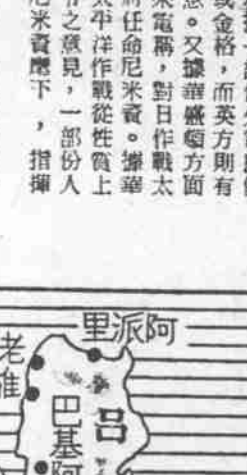 或金格，而英方則有
息。又據華盛頓方面
來電稱，對日作戰太
將任命尼米資。據華
太平洋作戰從性質上
令之意見，一部份人
尼米資麾下，指揮
阿派里
老
維
呂
巴基阿